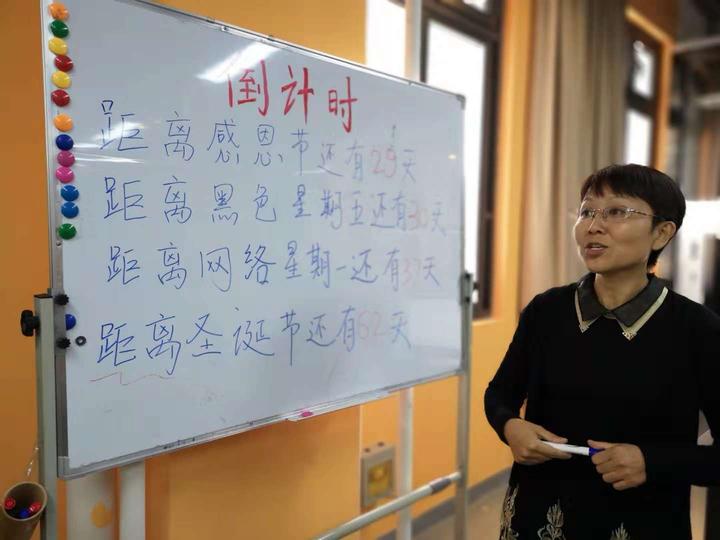 倒计时
距离感恩节还有29天
距离黑色星期五还有30天
距离网络星期一还有33天
距离圣诞节还有62天